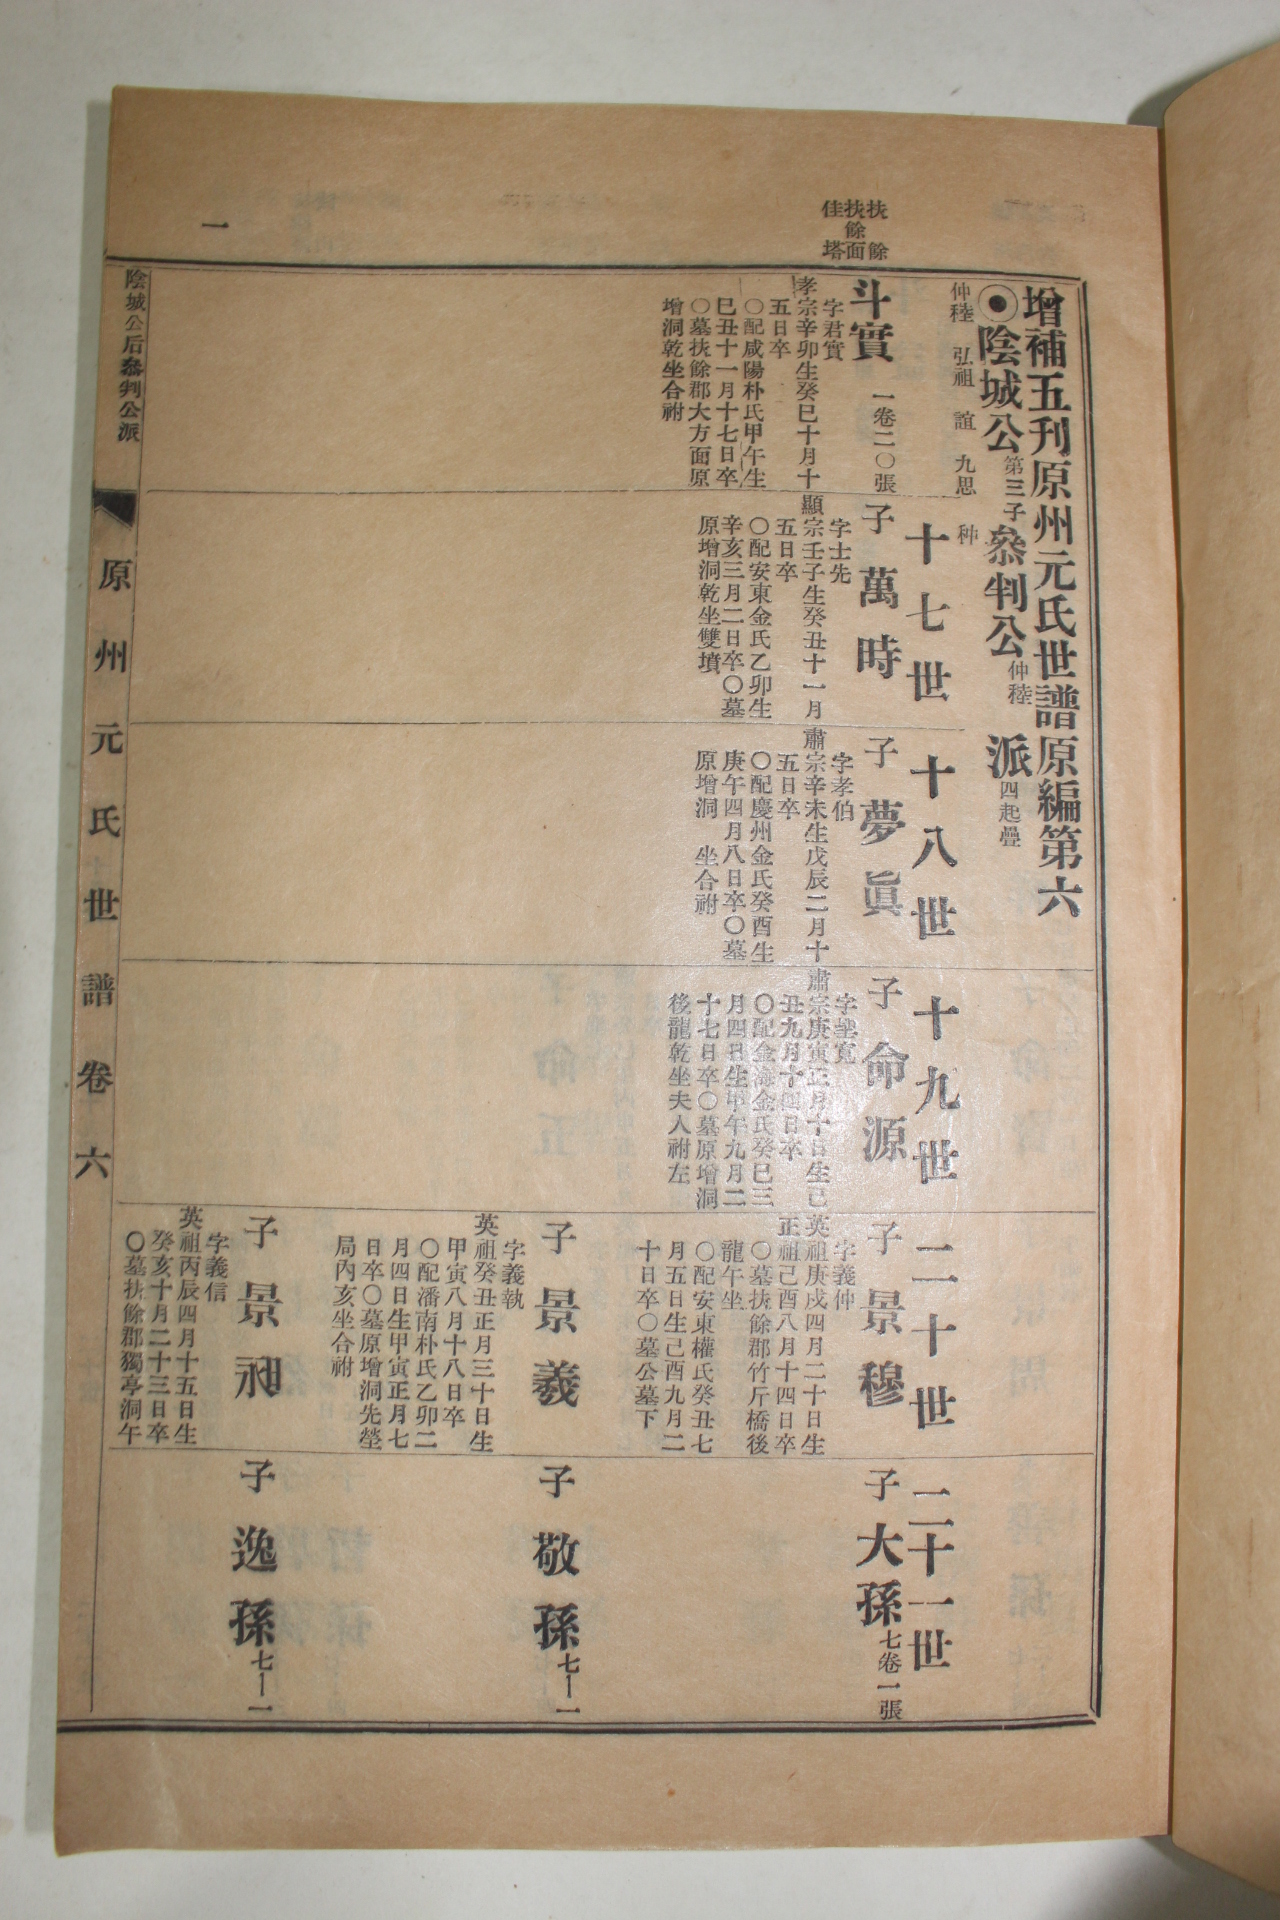 增補五刊原州元氏世譜原編第六
◉陰城公第三子叅判公仲稑派四起疊
仲稑 弘祖 誼 九思 种
扶餘
扶餘面
佳塔
斗實 一卷二〇張
字君實
孝宗辛卯生癸巳十月十
五日卒
〇配咸陽朴氏甲午生
己丑十一月十七日卒
〇墓扶餘郡大方面原
增洞乾坐合祔
十七世
子萬時
字士先
顯宗壬子生癸丑十一月
五日卒
〇配安東金氏乙卯生
辛亥三月二日卒〇墓
原增洞乾坐雙墳
十八世
子夢眞
字孝伯
肅宗辛未生戊辰二月十
五日卒
〇配慶州金氏癸酉生
庚午四月八日卒〇墓
原增洞 坐合祔
十九世
子命源
寬
肅宗庚寅正月十日生己
丑九月十四日卒
〇配金海金氏癸巳三
月四日生甲午九月二
十七日卒〇墓原增洞
後龍乾坐夫人祔左
二十世
子景穆
字義仲
英祖庚戌四月二十日生
正祖己酉八月十四日卒
〇墓扶餘郡竹斤橋後
龍午坐
〇配安東權氏癸丑七
月五日生己酉九月二
十日卒〇墓公墓下
子景羲
字義執
英祖癸丑正月三十日生
甲寅八月十八日卒
〇配潘南朴氏乙卯二
月四日生甲寅正月七
日卒〇墓原增洞先塋
局內亥坐合祔
子景昶
字義信
英祖丙辰四月十五日生
癸亥十月二十三日卒
〇墓扶餘郡獨亭洞午
二十一世
子大孫七卷一張
子敬孫七—一
子逸孫七—一
一
陰城公后叅判公派
原州元氏世譜 卷六